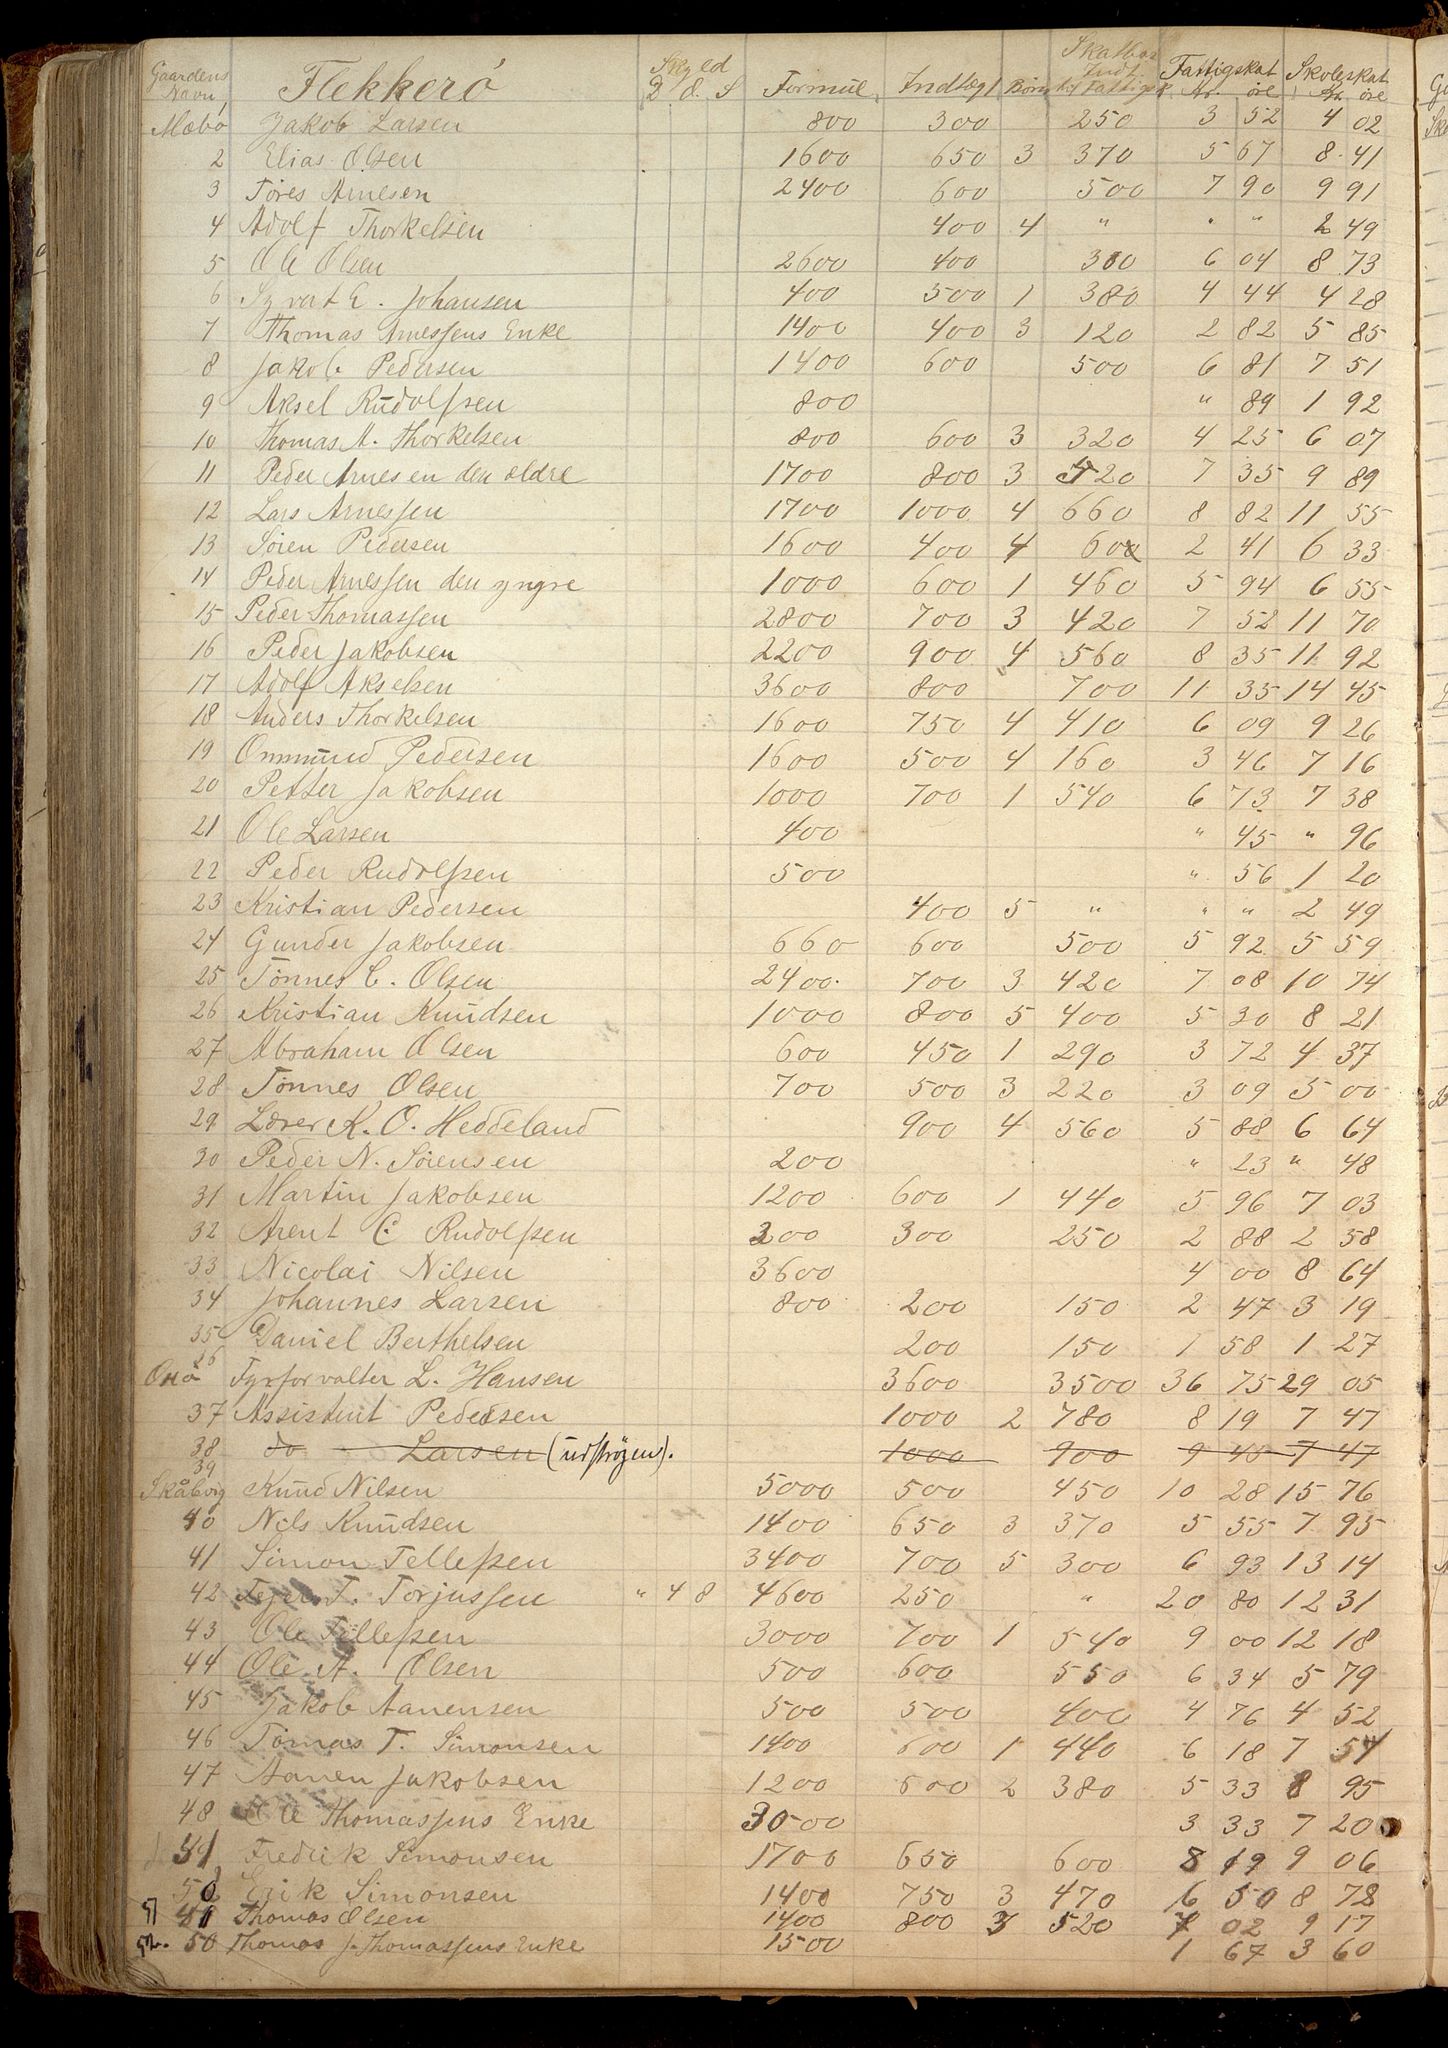 Gaardens Navn Flekkerö Skyld D. Ö. S Formue Indtægt Börn Skatbar Indt. til Fattigsk Fattigskat Kr. öre Skoleskat Kr. öre
Mæbø Jakob Larsen 800 300 250 3 52 4 02
2 Elias Olsen 1600 650 3 370 5 67 8 41
3 Töres Arnesen 2400 600 500 7 90 9 91
4 Adolf Thorkelsen 400 4 " " " 2 49
5 Ole Olsen 2600 400 6 04 8 73
6 Syvert E. Johansen 400 500 1 380 4 44 4 28
7 Thomas Arnessens Enke 1400 400 3 120 2 82 5 85
8 Jakob Pedersen 1400 600 500 6 81 7 51
9 Aksel Rudolfsen 800 " 89 1 92
10 Thomas A. Thorkelsen 800 600 3 320 4 25 6 07
11 Peder Arnesen den eldre 1700 800 3 420 7 35 9 89
12 Lars Arnessen 1700 1000 4 660 8 82 11 55
13 Sören Pedersen 1600 400 4 60 2 41 6 33
14 Peder Arnessen den yngre 1000 600 1 460 5 94 6 55
15 Peder Thomassen 2800 700 3 420 7 52 11 70
16 Peder Jakobsen 2200 900 4 560 8 35 11 92
17 Adolf Akselsen 3600 800 700 11 35 14 45
18 Anders Thorkelsen 1600 750 4 410 6 09 9 26
19 Ommund Pedersen 1600 500 4 160 3 46 7 16
20 Petter Jakobsen 1000 700 1 540 6 73 7 38
21 Ole Larsen 400 " 45 " 96
22 Peder Rudolfsen 500 " 56 1 20
23 Kristian Pedersen 400 5 " " " 2 49
24 Gunder Jakobsen 660 600 500 5 92 5 59
25 Tönnes C. Olsen 2400 700 3 420 7 08 10 74
26 Kristian Knudsen 1000 800 5 400 5 30 8 21
27 Abraham Olsen 600 450 1 290 3 72 4 37
28 Tönnes Olsen 700 500 3 220 3 09 5 00
29 Lærer K. O. Heddeland 900 4 560 5 88 6 64
30 Peder N. Sörensen 200 " 23 " 48
31 Martin Jakobsen 1200 600 1 440 5 96 7 03
32 Arent C. Rudolfsen 200 300 250 2 88 2 58
33 Nicolai Nilsen 3600 4 00 8 64
34 Johannes Larsen 800 200 150 2 47 3 19
35 Daniel Berthelsen 200 150 1 58 1 27
36 Oxö Fyrforvalter L. Hansen 3600 3500 36 75 29 05
37 Assistent Pedersen 1000 2 780 8 19 7 47
38 do - Larsen (udströgen). 1000 900 9 45 7 47
39 Skålevig Knud Nilsen 5000 500 450 10 28 15 76
40 Nils Knudsen 1400 650 3 370 5 55 7 95
41 Simon Tellefsen 3400 700 5 300 6 93 13 14
42 T. Torjussen " 4 8 4600 250 " 20 80 12 31
43 Ole Tellefsen 3000 700 1 540 9 00 12 18
44 Ole A. Olsen 500 600 550 6 34 5 79
45 Jakob Aanensen 500 500 400 4 76 4 52
46 Tomas T. Simonsen 1400 600 1 440 6 18 7 51
47 Aanen Jakobsen 1200 600 2 380 5 33 8 95
48 Ole Thomassens Enke 3000 3 33 7 20
Fredrik Simonsen 1700 650 600 8 19 9 06
50 Erik Simonsen 1400 750 3 470 6 50 8 78
51 Thomas Olsen 1400 800 3 520 7 02 9 17
52. 50 Thomas J. Thomassens Enke 1500 1 67 3 60